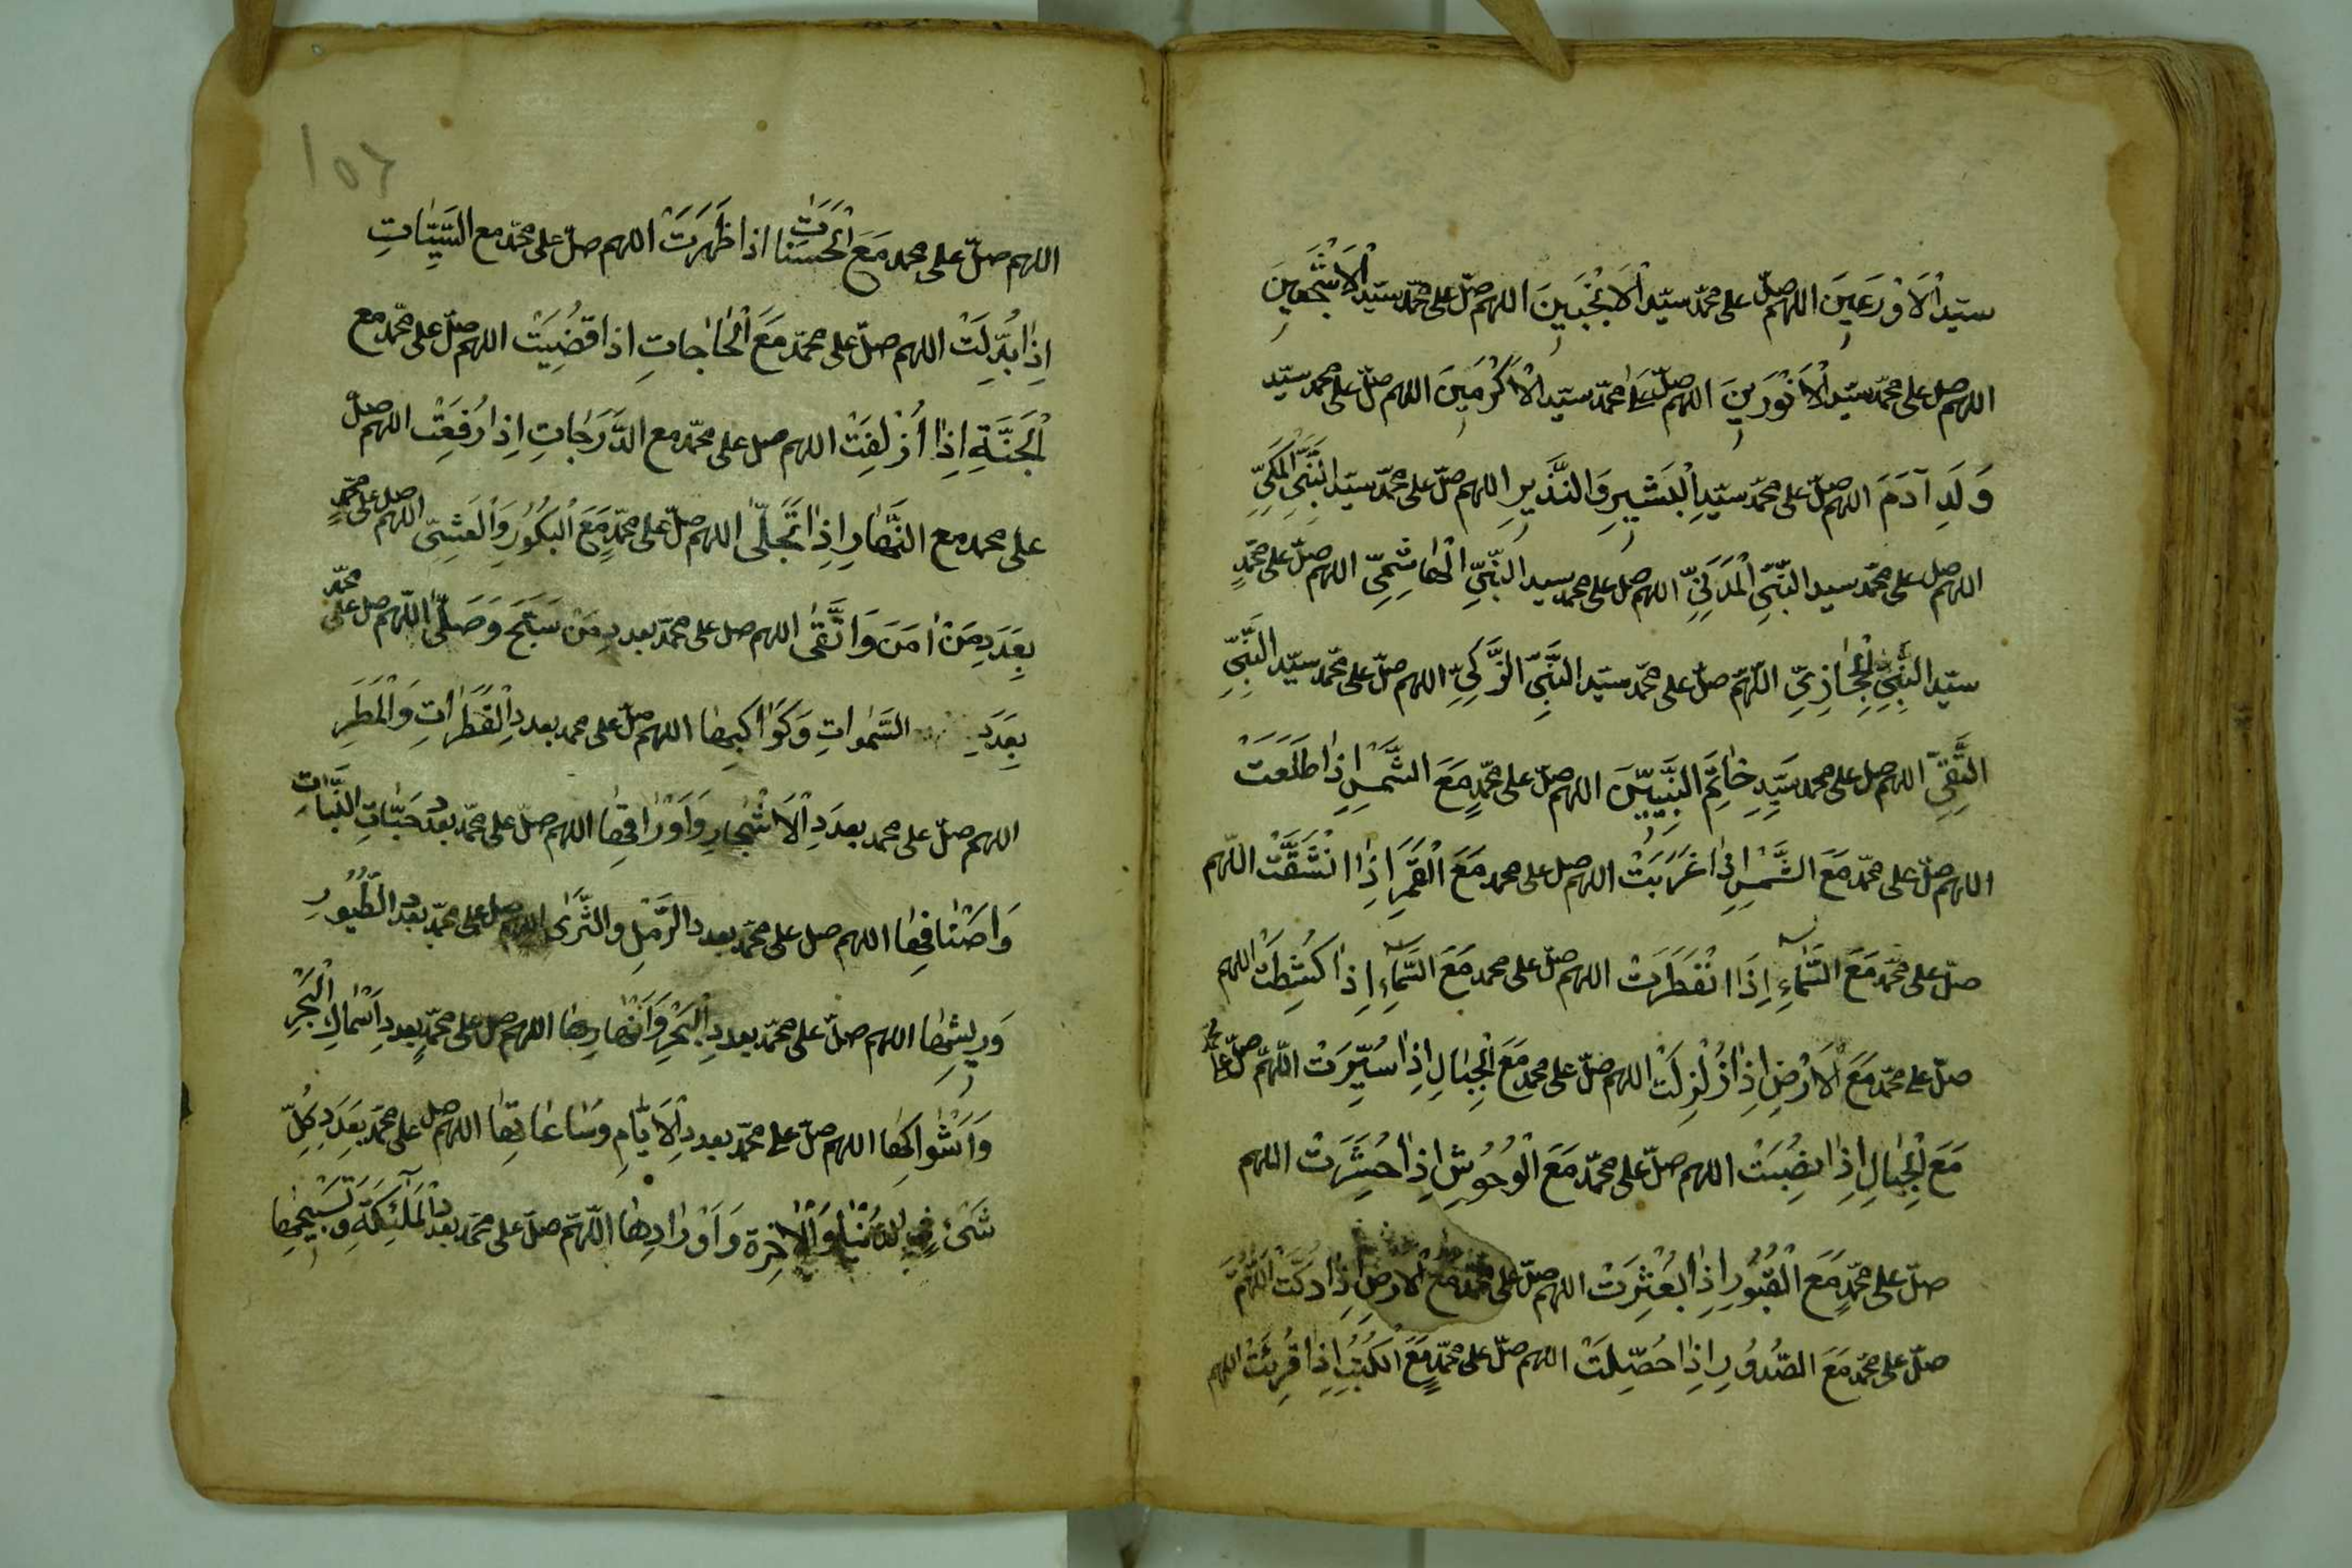 سيّد الْاَوْرَعِينَ اللهم صلّ على محمّد سيّد الْاَنْجَبِينَ اللهم صلّ على محمّد سيّد الْاَشْجَعِينَ
اللهم صل على محمّد سيّد الْاَنْوَرِينَ اللهم صلّ عَلَى محمّد سيّد الْاَكْرَمِينَ اللهم صلّ على محمد سيّد
وَلَدِ آدَمَ اللهم صلّ على محمّد سيّدِ الْبَشِيرِ وَالنَّذِيرِ اللهم صلّ على محمّد سيّد النَّبِيِّ الْمَكِّيِّ
اللهم صل على محمّد سيد النَّبِيِّ الْمَدَنِيِّ اللهم صل على محمد سيد النَّبِيِّ الْهَاشِمِيِّ اللهم صلّ على محمّدٍ
سيّد النَّبِيِّ الْحِجَازِيِّ اللّهمّ صلّ على محمّد سيّد النَّبِيِّ الزَّكِيِّ اللهم صلّ على محمّد سيّد النَّبِيِّ
التَّقِيِّ اللهم صل على محمد سَيِّدِ خَاتَمِ النَّبِيِّينَ اللهم صلّ على محمّدٍ مَعَ الشَّمْسِ اِذَا طَلَعَتْ
اللهم صلّ على محمّد مَعَ الشَّمْسِ اِذَا غَرَبَتْ اللهم صل على محمد مَعَ الْقَمَرِ اِذَا انْشَقَّتْ اللّهم
صلّ على محمّد مَعَ السَّمَآءِ اِذَا انْفَطَرَتْ اللهم صلّ على محمد مَعَ السَّمَآءِ اِذَا كُشِطَتْ اللهم
صلّ على محمّد مَعَ الْاَرْضِ اِذَا زُلْزِلَتْ اللهم صلّ على محمد مَعَ الْجِبَالِ اِذَا سُيِّرَتْ اللّهمّ صلّ على محمد
مَعَ الْجِبَالِ اِذَا نُصِبَتْ اللهم صلّ على محمّد مَعَ الْوُحُوشِ اِذَا حُشِرَتْ اللهم
صلّ على محمّدٍ مَعَ الْقُبُورِ اِذَا بُعْثِرَتْ اللهم صلّ على محمّد مَعَ الارضِ اِذَا دكّت اللّهُمَّ
صلّ على محمّد مَعَ الصُّدُورِ اِذَا حُصِّلَتْ اللهم صلّ على محمّدٍ مَعَ الْكُتُبِ اِذَا قُرِئَتْ اللهم
١٥٦
اللهم صلّ على محمد مَعَ الْحَسَنَاتِ اذا ظَهَرَتْ اللهم صلّ على محمّد مع السَّيِّئَاتِ
اِذَا بُدِّلَتْ اللهم صلّ على محمّد مَعَ الْحَاجَاتِ اذا قُضِيَتْ اللهم صلّ على محمّد مع
الْجَنَّةِ اِذَا اُزْلِفَتْ اللهم صل على محمّد مع الدَّرَجَاتِ اِذا رُفِعَتْ اللهم صلّ
على محمد مع النَّهَارِ اِذَا تَجَلّٰى اللهم صلّ على محمّدٍ مَعَ الْبُكُورِ وَالْعَشِيّ اللهم صل على محمّدٍ
بِعَدَدِ مَنْ اٰمَنَ وَاتَّقٰى اللهم صل على محمّد بعدد مَنْ سَبَّحَ وَصَلّٰى اللّهم صل على محمّد
بِعَدَدِ السَّمٰوَاتِ وَكَوَاكِبِهَا اللهم صلّ على محمد بعددِ الْقَطَرَاتِ وَالْمَطَرِ
اللهم صلّ على محمد بعدَدِ الْاَشْجَارِ وَاَوْرَاقِهَا اللهم صلّ على محمّد بعدد حَبَّاتِ النَّبَاتِ
وَاَصْنَافِهَا اللهم صل على محمّد بعدد الرَّمْلِ والثَّرٰى اللهم صل على محمّد بعدد الطُّيُورِ
وَرِيشِهَا اللهم صلّ على محمّد بعددِ الْبَحْرِ وَاَنْهَارِهَا اللهم صل على محمّدٍ بعددِ اَسْمَاكِ الْبَحْرِ
وَاَشْوَاكِهَا اللهم صلّ على محمّد بعددِ الْاَيَّامِ وسَاعَاتِهَا اللهم صل على محمّد بعَدَدِ كُلِّ
شَىْءٍ فِى الدُّنْيَا وَالْاٰخِرَة وَاَوْرَادِهَا اللّهمّ صلّ على محمّد بعدد الْمَلٰئِكَةِ وَتَسْبِيحِهَا